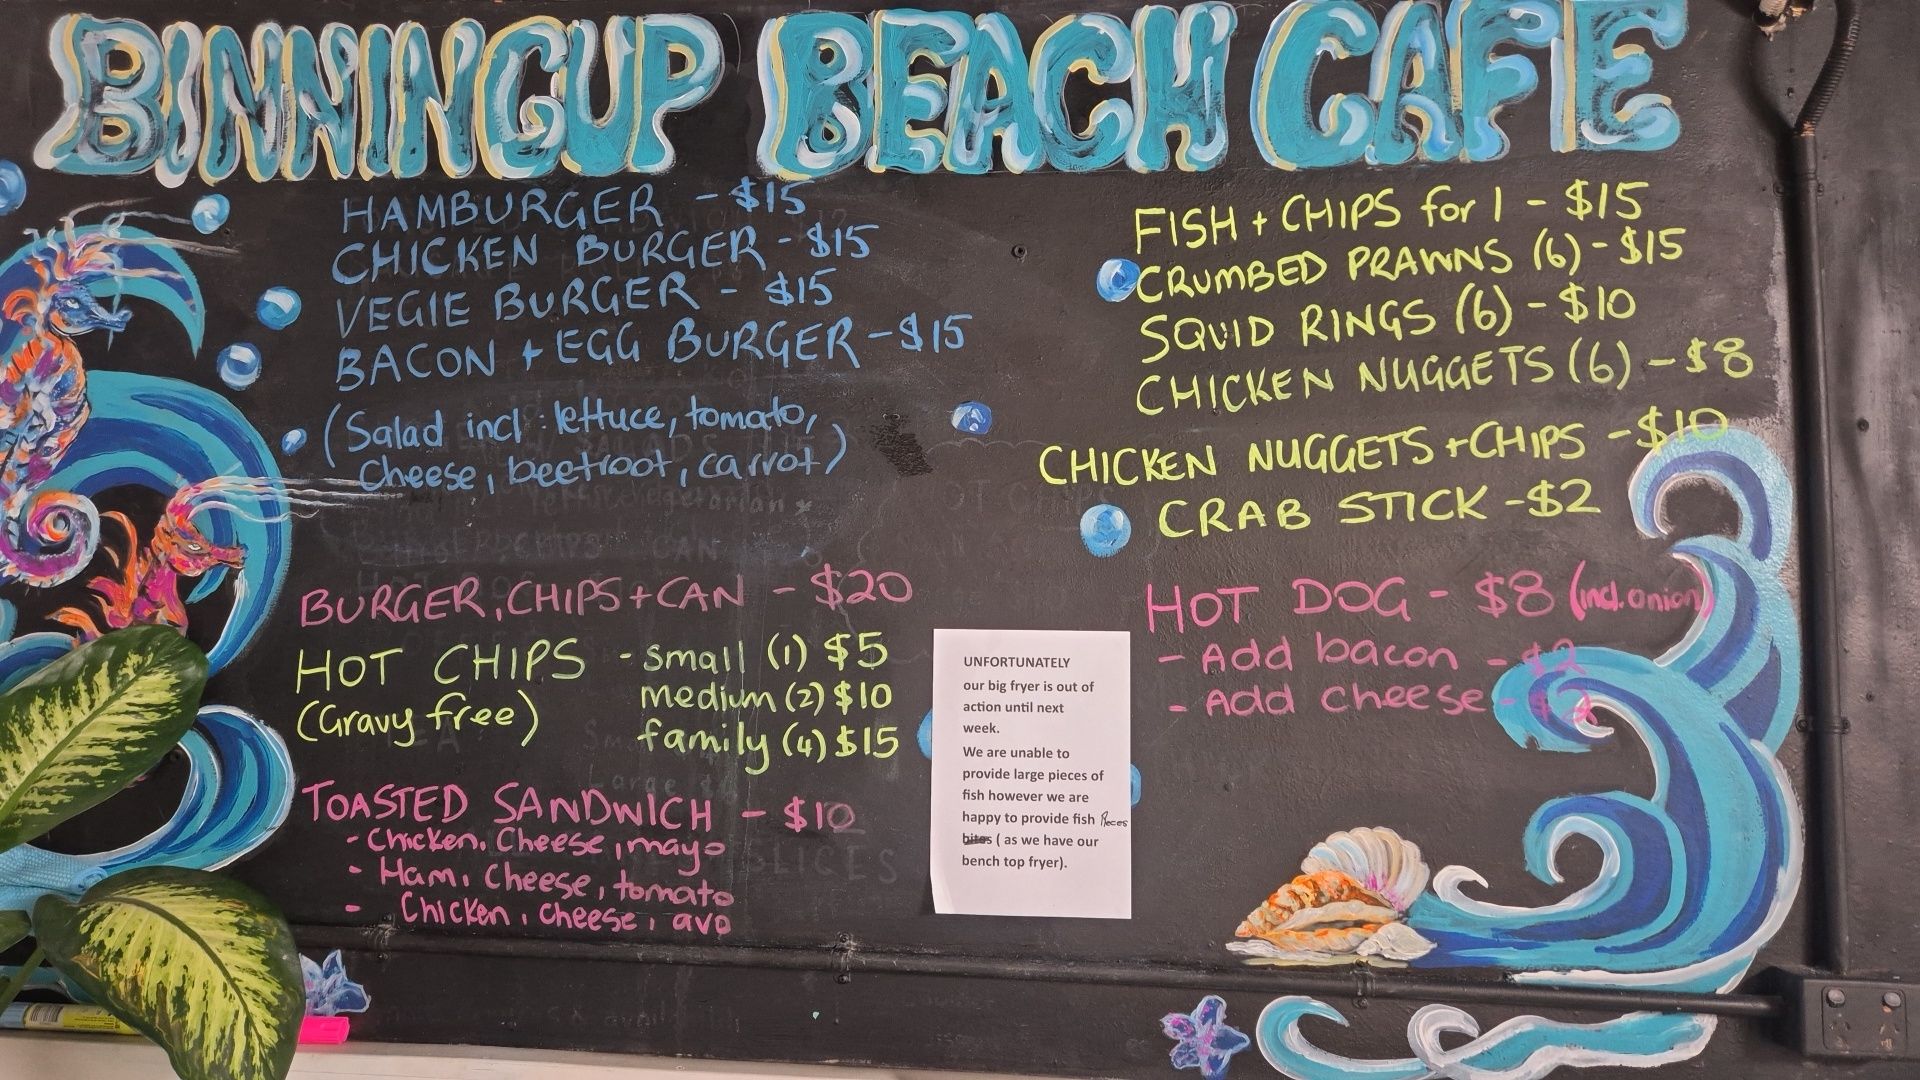 BINNINGUP BEACH CAFE
HAMBURGER - $15
CHICKEN BURGER - $15
VEGIE BURGER - $15
BACON + EGG BURGER - $15
(Salad incl: lettuce, tomato,
cheese, beetroot, carrot)
BURGER, CHIPS + CAN - $20
HOT CHIPS - small (1) $5
(Gravy free) medium (2) $10
family (4) $15
TOASTED SANDWICH - $10
- Chicken, Cheese, mayo
- Ham, Cheese, tomato
- Chicken, cheese, avo
FISH + CHIPS for 1 - $15
CRUMBED PRAWNS (6) - $15
SQUID RINGS (6) - $10
CHICKEN NUGGETS (6) - $8
CHICKEN NUGGETS + CHIPS - $10
CRAB STICK - $2
HOT DOG - $8 (incl. onion)
- Add bacon - $2
- Add cheese - $2
UNFORTUNATELY
our big fryer is out of
action until next
week.
We are unable to
provide large pieces of
fish however we are
happy to provide fish Pieces
bites ( as we have our
bench top fryer).